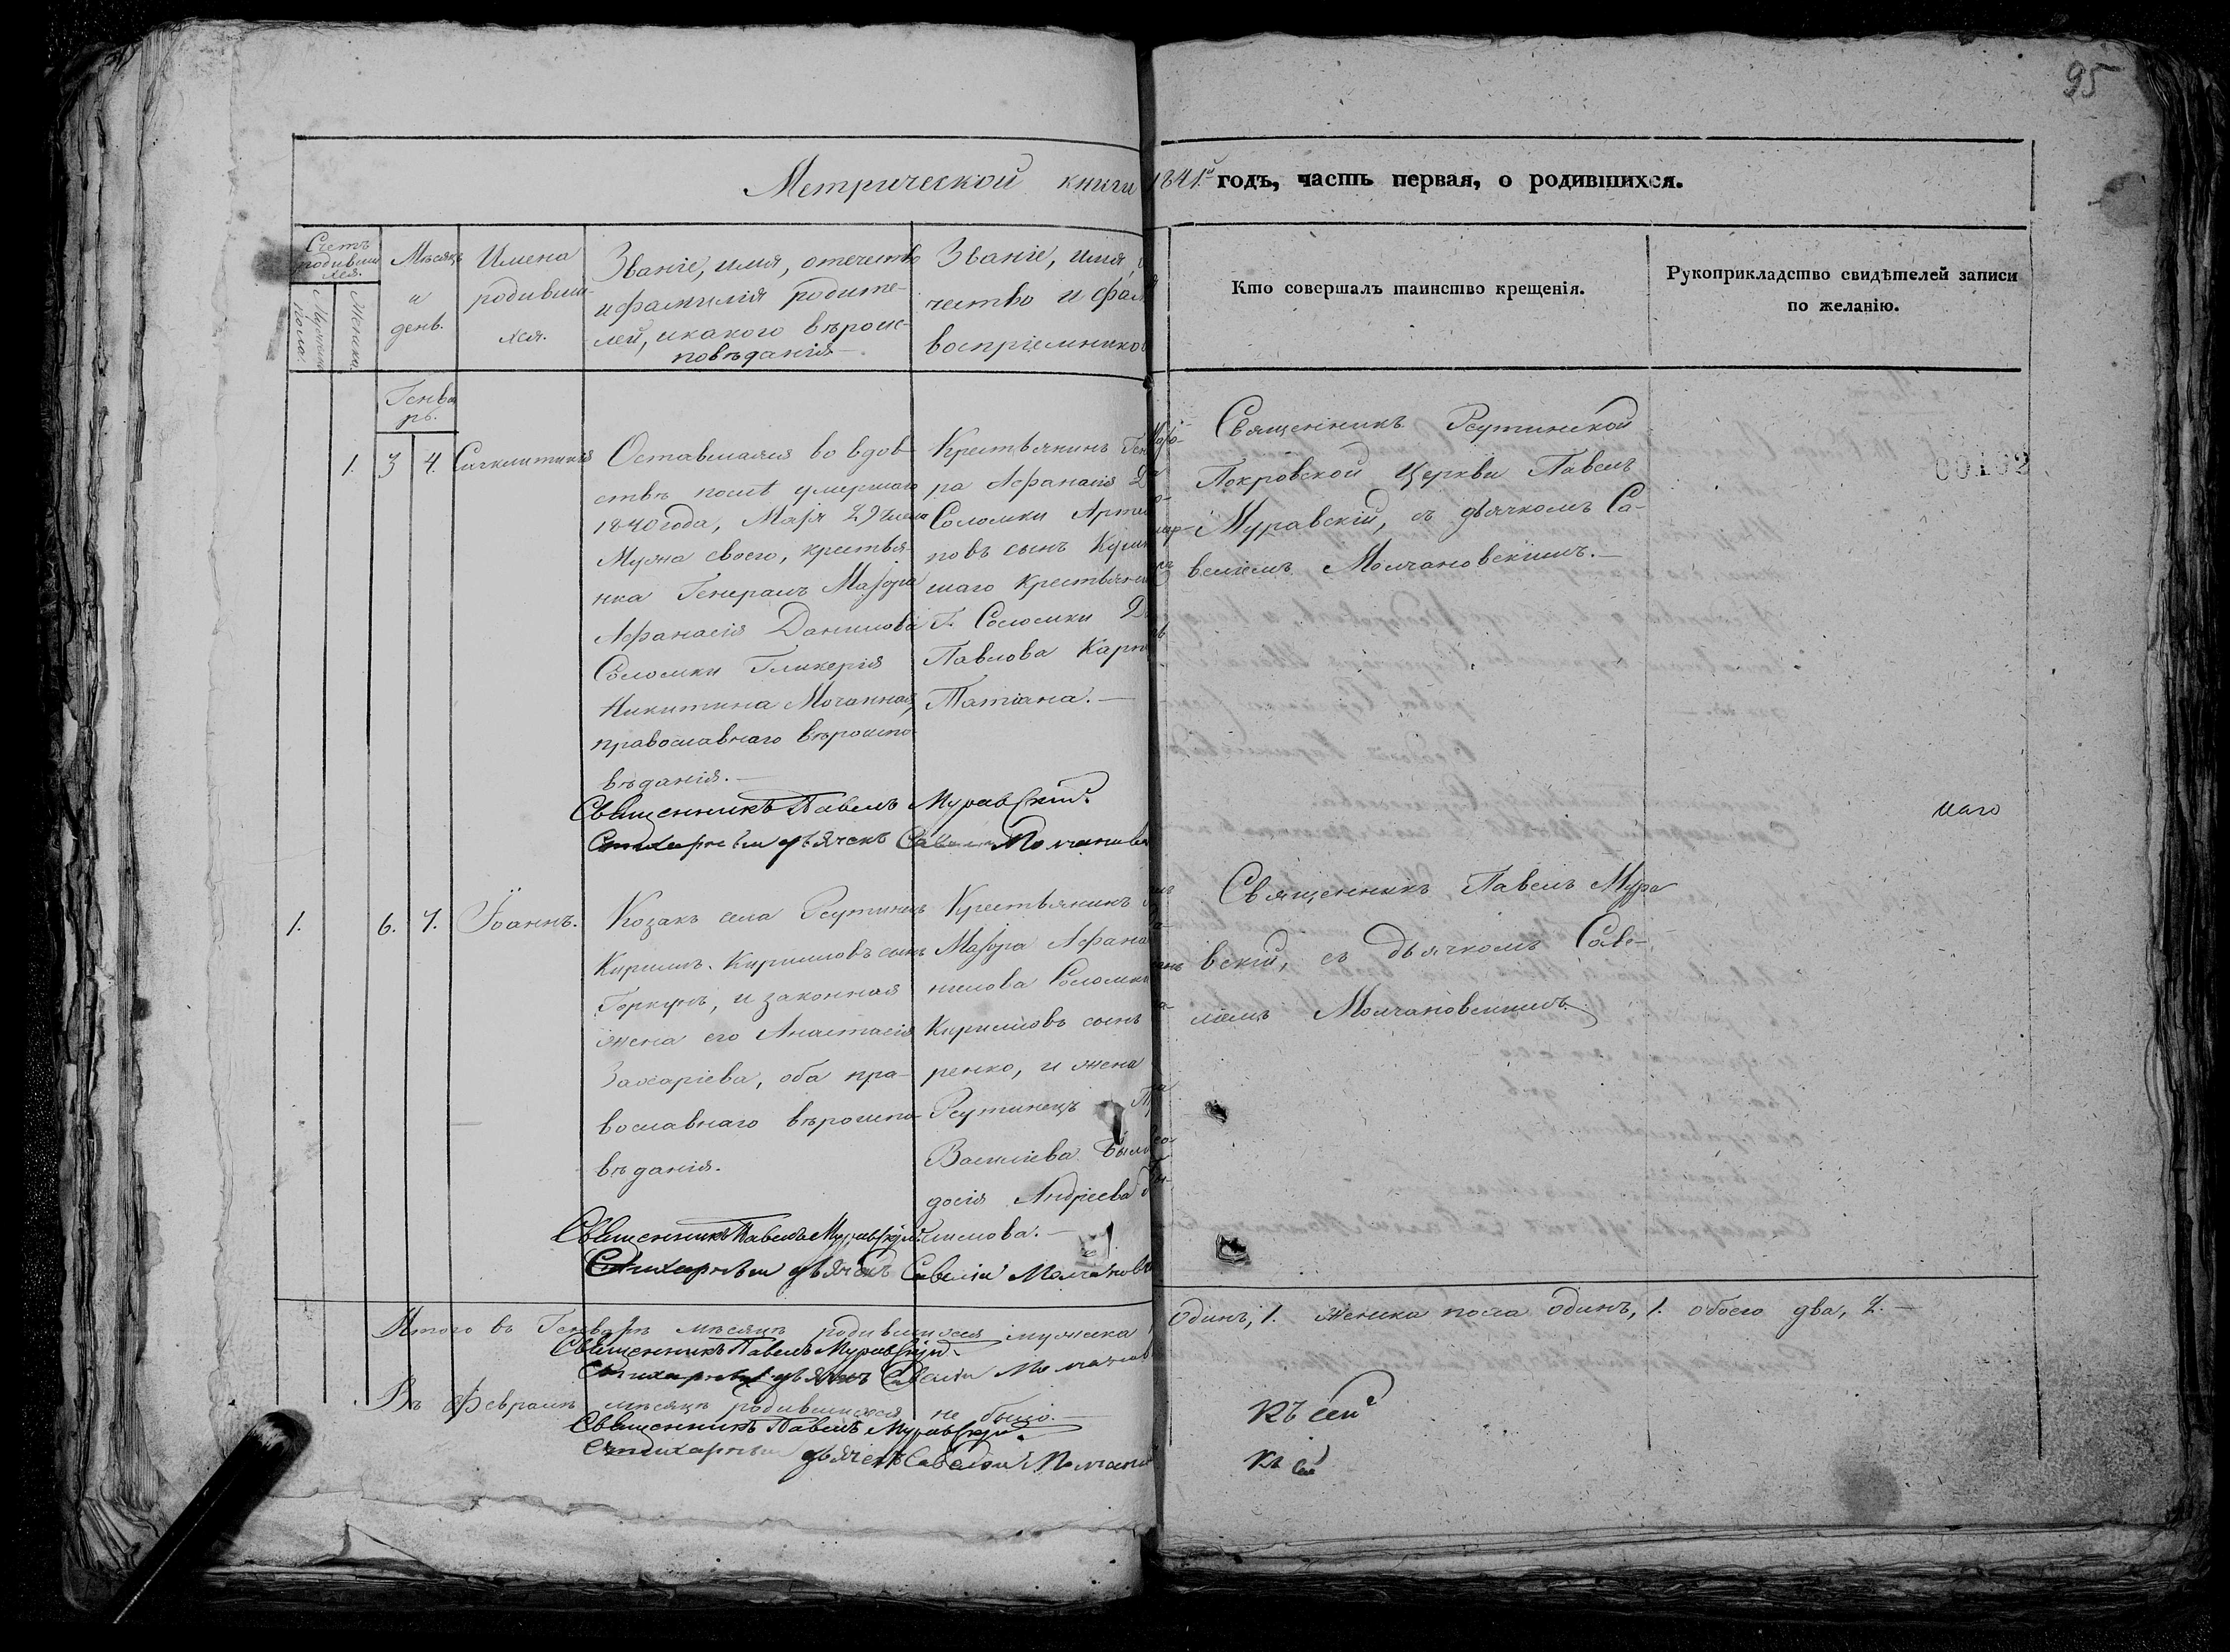 95
Метрической книги 1841й годъ, часть первая, о родившихся.
Счетъ
родивших
ся.
Мужеска
пола.
Женска.
Мѣсяцъ
и
день.
Имена
родивших
ся.
Званіе, имя, отечество
и фамилія родите-
лей, и какого вѣроис-
повѣданія
Званіе, имя,
чество и фам
воспріемников
Кто совершалъ таинство крещенія.
Рукоприкладство свидѣтелей записи
по желанію.
Генва
рь.
1. 3 4. Сигклитикія
Оставшаяся во вдов
ствѣ послѣ умершаго
1840 года, Маія 29 числа
Мужа своего, крестья
нка Генералъ Маіора
Афанасія Данилова
Соломки Гликерія
Никитина Мочанная,
православнаго вѣроиспо
вѣданія.
Крестьянинъ Ген
ра Афанасія Д
Соломки Артем
повъ сынъ
шаго крестьяни
Г. Соломки
Павлова Карп
Татіана.
Священникъ Реутинской
Покровской Церкви Павелъ
Муравскій, съ дьячкомъ Са-
веліемъ Молчановскимъ.
00102
Священникъ Павелъ Муравскій
Стихарный дьячекъ Савелій Молчановс
наго
1. 6. 7. Іоаннъ.
Козакъ села Реутинецъ
Кириллъ Кирилловъ сынъ
Горкунъ, и законная
жена его Анастасія
Захаріева, оба пра-
вославнаго вѣроиспо-
вѣданія.
Крестьянинъ
Маіора Афана
нилова Соломки
Кирилловъ сынъ
ренко, и жена
Реутинецъ
Василіева
досія Андріева
лимова.
Священникъ Павелъ Мура
вскій, съ дьячкомъ Саве-
ліемъ Молчановскимъ.
Священникъ Павелъ Муравскій
Стихарный дьячекъ Савелій Молчановс
Итого въ Генварѣ мѣсяцѣ родившихся мужска одинъ, 1. женска пола одинъ, 1. обоего два, 2.
Священникъ Павелъ Муравскій
Стихарный дьячекъ Савелій Молчанов
Въ Февралѣ мѣсяцѣ родившихся не было.
Священникъ Павелъ Муравскій
Стихарный дьячекъ Савелій Молчанов